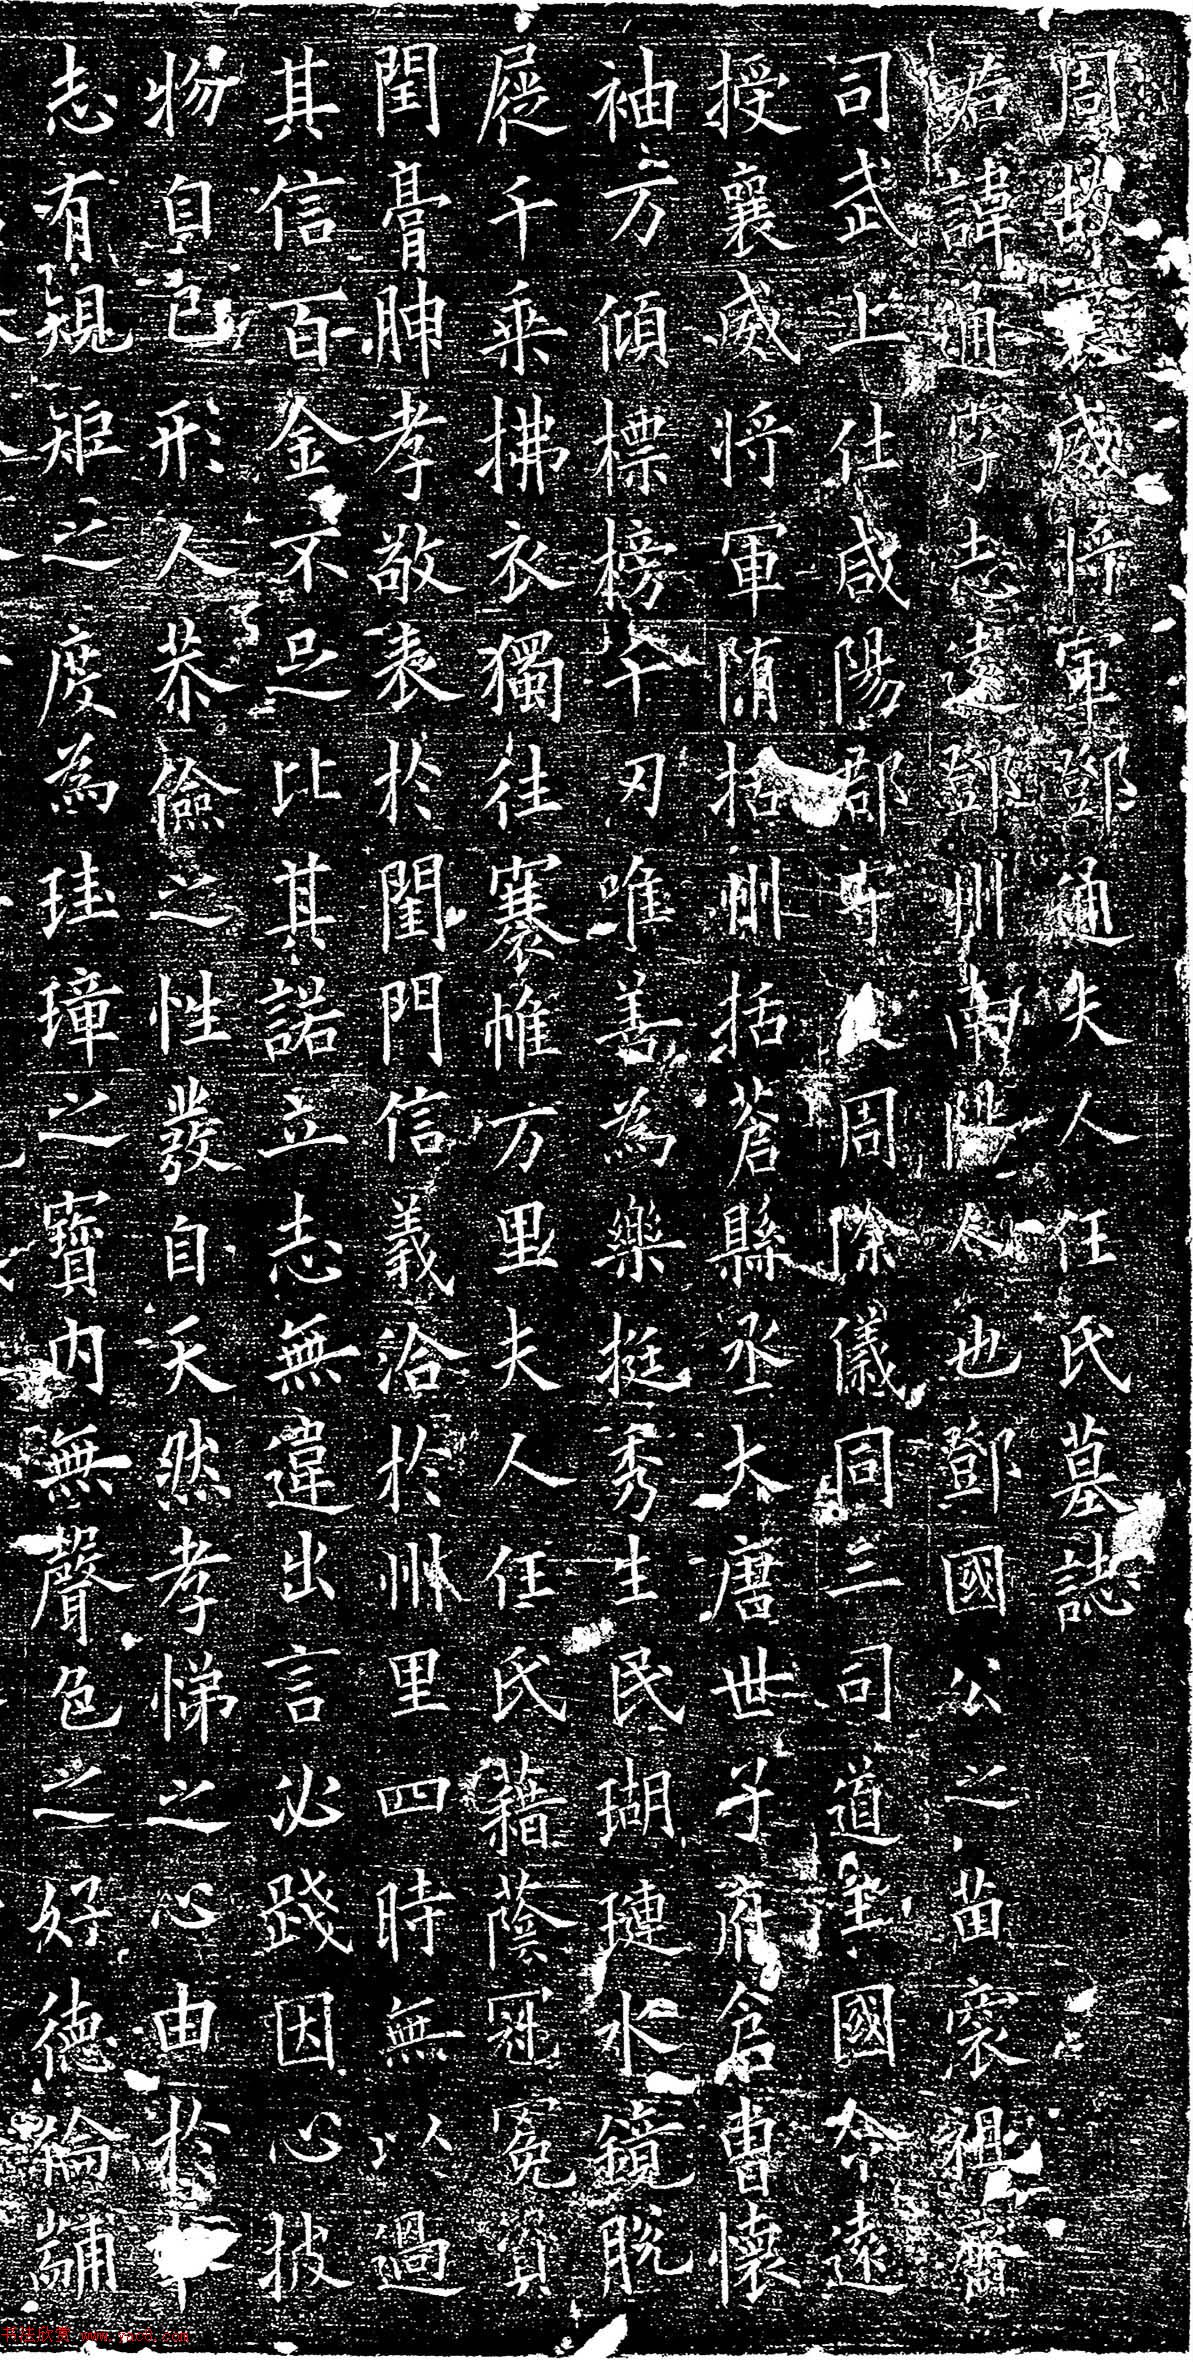 周故襄威將軍鄧通夫人任氏墓誌
君諱通字志遠鄧州南陽人也鄧國公之苗裔祖齊
司武上仕咸陽郡守父周除儀同三司道王國令遠
授襄威將軍隋括州括蒼縣丞大唐世子府倉曹懷
袖万傾標榜千刃唯善為樂挺秀生民瑚璉水鏡脫
屣千乘拂衣獨往褰帷方里夫人任氏藉蔭冠冕資
閏膏腴孝敬表於閨門信義洽於州里四時無以過
其信百金不足比其諾立志無違出言必踐因心披
物自色形人恭儉之性發自天然孝悌之心由於本
志有規矩之度為珪璋之寶內無聲色之好德綸黼
书法欣赏 www.yac8.com